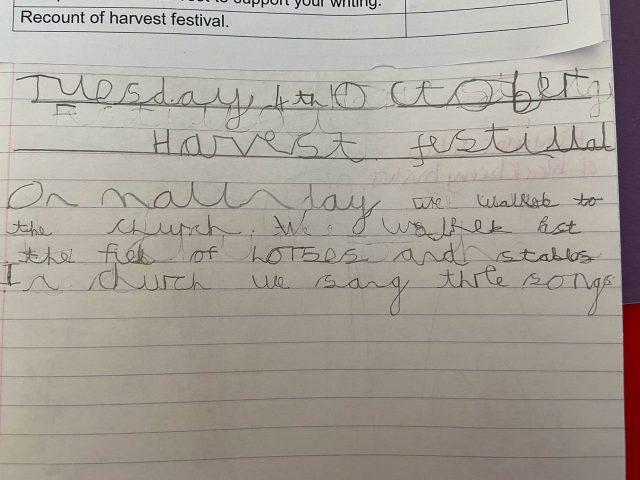 to support your writing.
Recount of harvest festival.
Tuesday 4th October
Harvest festillal
On mallnday we walkek to
the church. We walkek
the of horses and stables
In church we sang three songs